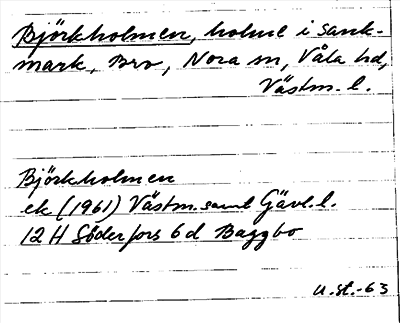 Björkholmen, holme i sank-
mark, Bro, Nora sn, Våla hd,
Västm. l.
Björkholmen
ek (1961) Västm. samt Gävl. l.
12 H Söderfors 6 d Baggbo
U. St. -63